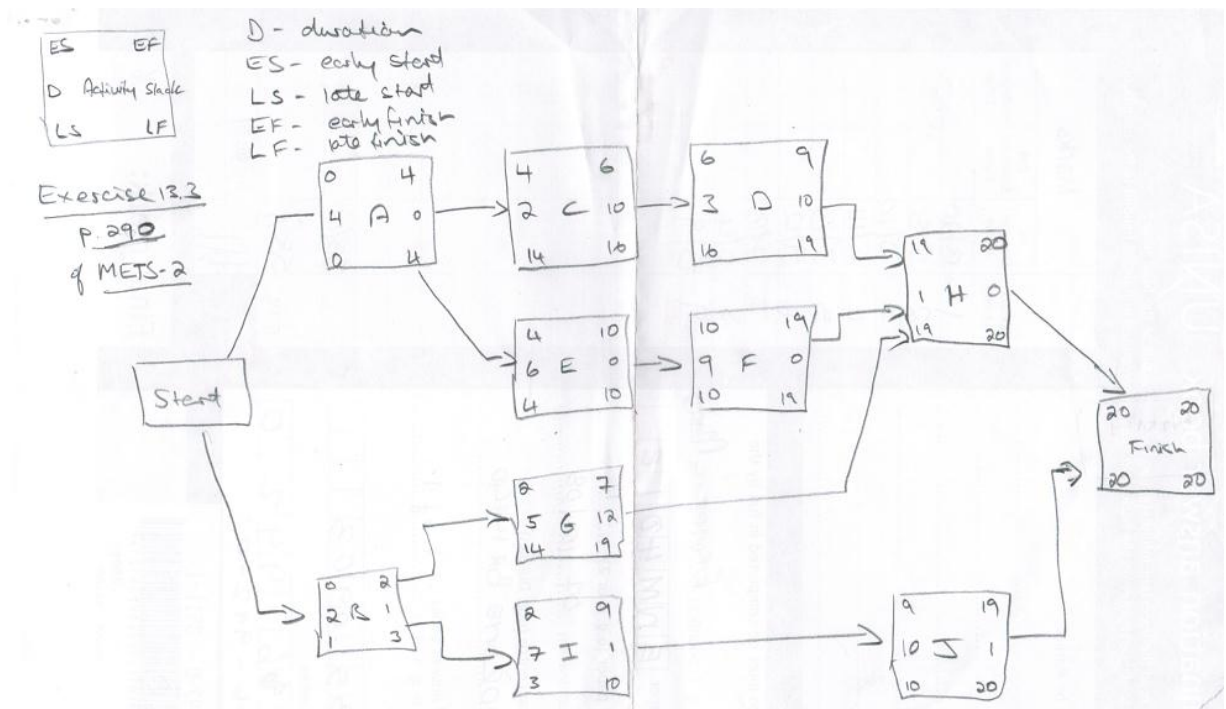 ES EF
D Activity Slack
LS LF
D - duration
ES - early start
LS - late start
EF - early finish
LF - late finish
Exercise 13.3
p. 290
of METS-2
Start
0 4
4 A 0
0 4
4 6
2 C 10
14 16
6 9
3 D 10
16 19
19 20
1 H 0
19 20
4 10
6 E 0
4 10
10 19
9 F 0
10 19
20 20
Finish
20 20
2 7
5 G 12
14 19
0 2
2 B 1
1 3
2 9
7 I 1
3 10
9 19
10 J 1
10 20